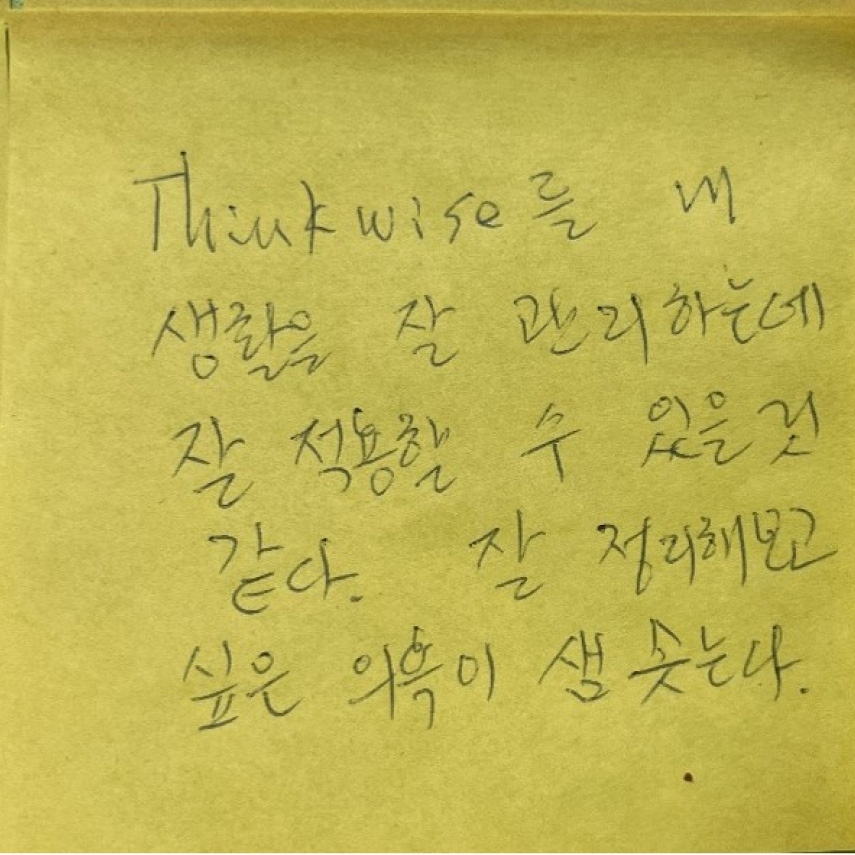 Thinkwise를 내
생활을 잘 관리하는데
잘 적용할 수 있을것
같다. 잘 정리해보고
싶은 의욕이 샘 솟는다.